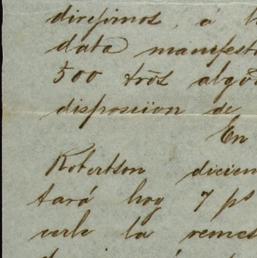 dirijimos, á l
data manifest
500 trōs algō
disposiion de
En
Robertson dicien
tará hoy 7 ps
cerle la remes